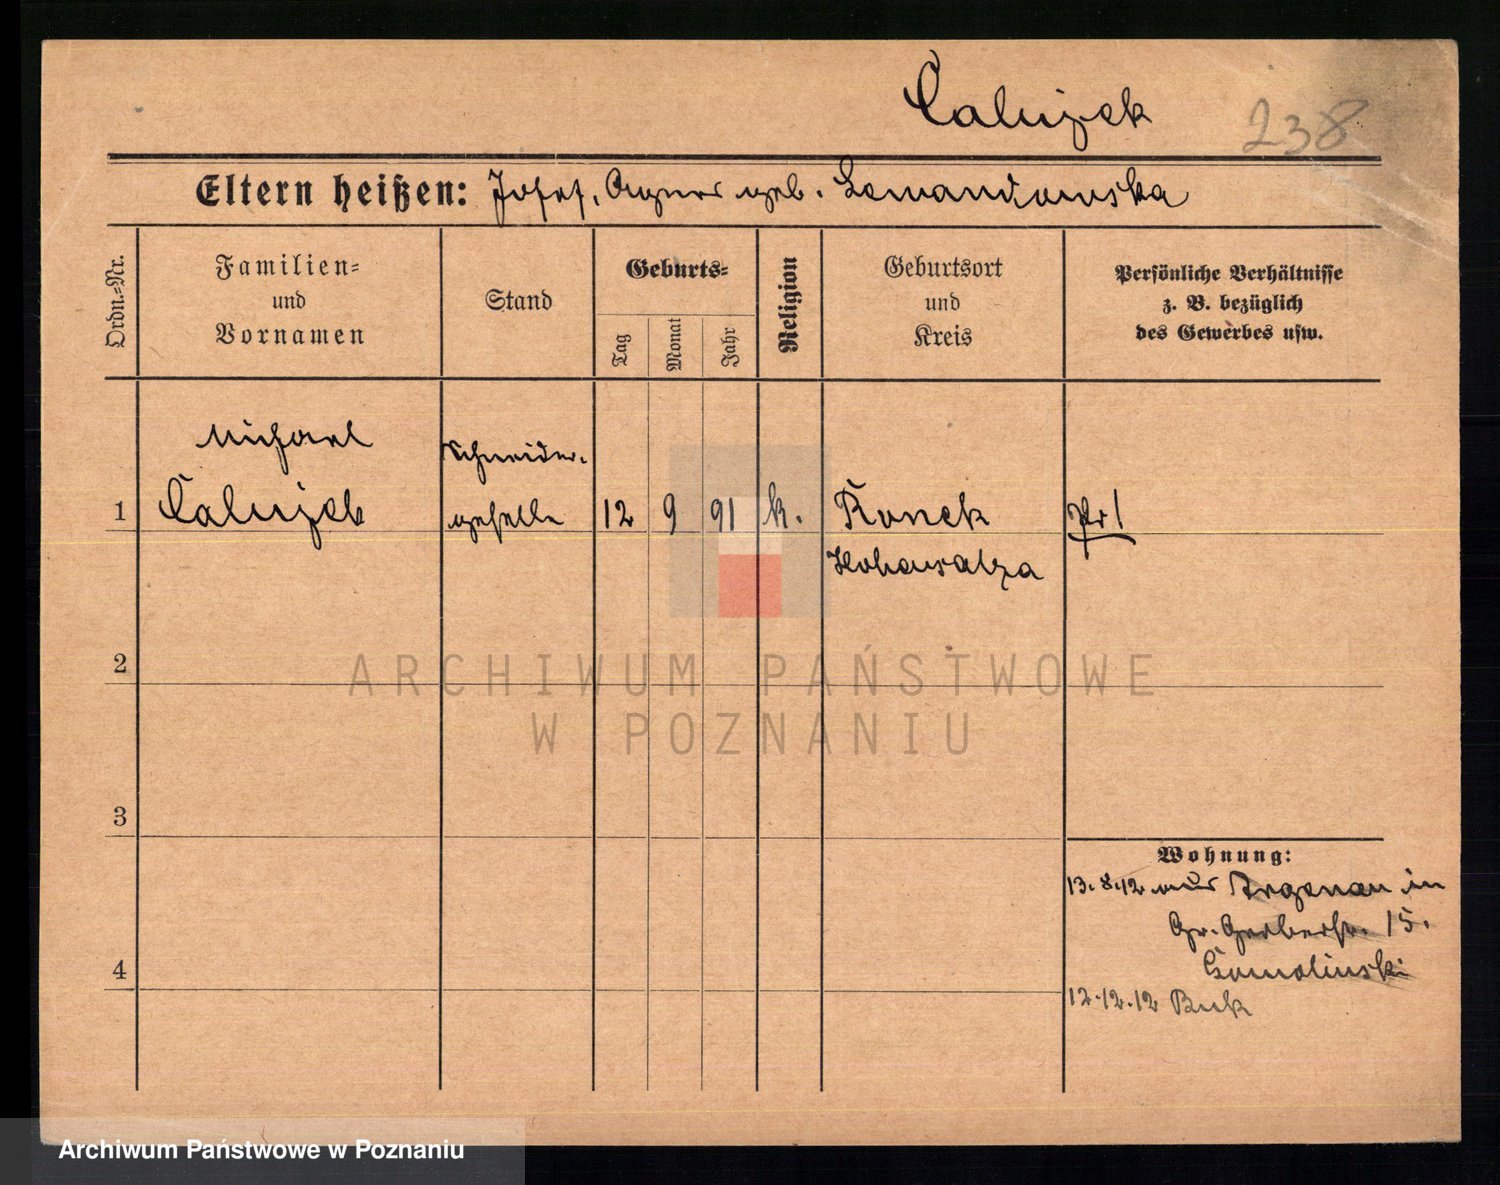 Calujek
238
Eltern heißen: Josef, Agnes geb. Lewandowska
Ordn.-Nr.
Familien-
und
Vornamen
Stand
Geburts-
Tag
Monat
Jahr
Religion
Geburtsort
und
Kreis
Persönliche Verhältnisse
z. B. bezüglich
des Gewerbes usw.
Michael
Schneider-
1 Calujek geselle 12 9 91 k. Konek Pr!
Hohensalza
2
ARCHIWUM PAŃSTWOWE
W POZNANIU
3
Wohnung:
13.8.12 aus Argenau in
Gr. Gerberstr. 15.
4
12.12.12 Buk
Archiwum Państwowe w Poznaniu